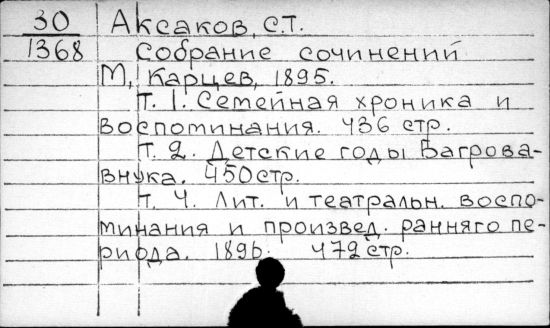 30 Аксаков, С.Т.
1368 Собрание сочинений
М, Карцев, 1895.
Т. 1. Семейная хроника и
воспоминания. 436 стр.
Т. 2. Детские годы Багрова-
внука. 450 стр.
Т. 4. Лит. и театральн. воспо-
минания и произвед. ранняго пе-
риода. 1896. 472 стр.